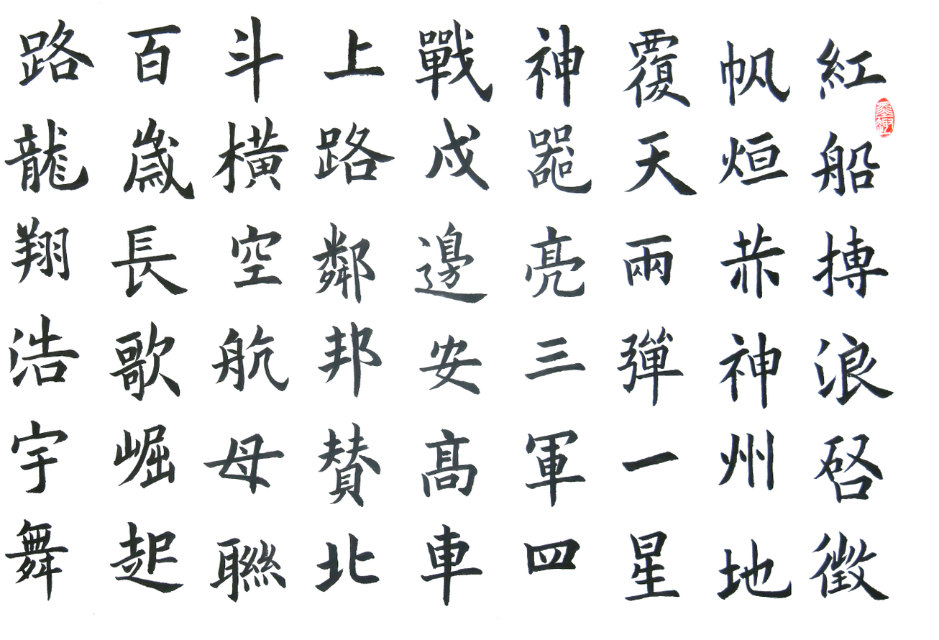 紅船搏浪啓徵
帆烜赤神州地
覆天兩彈一星
神噐亮三軍四
戰戍邊安髙車
上路鄰邦贊北
斗橫空航母聯
百歲長歌崛起
路龍翔浩宇舞